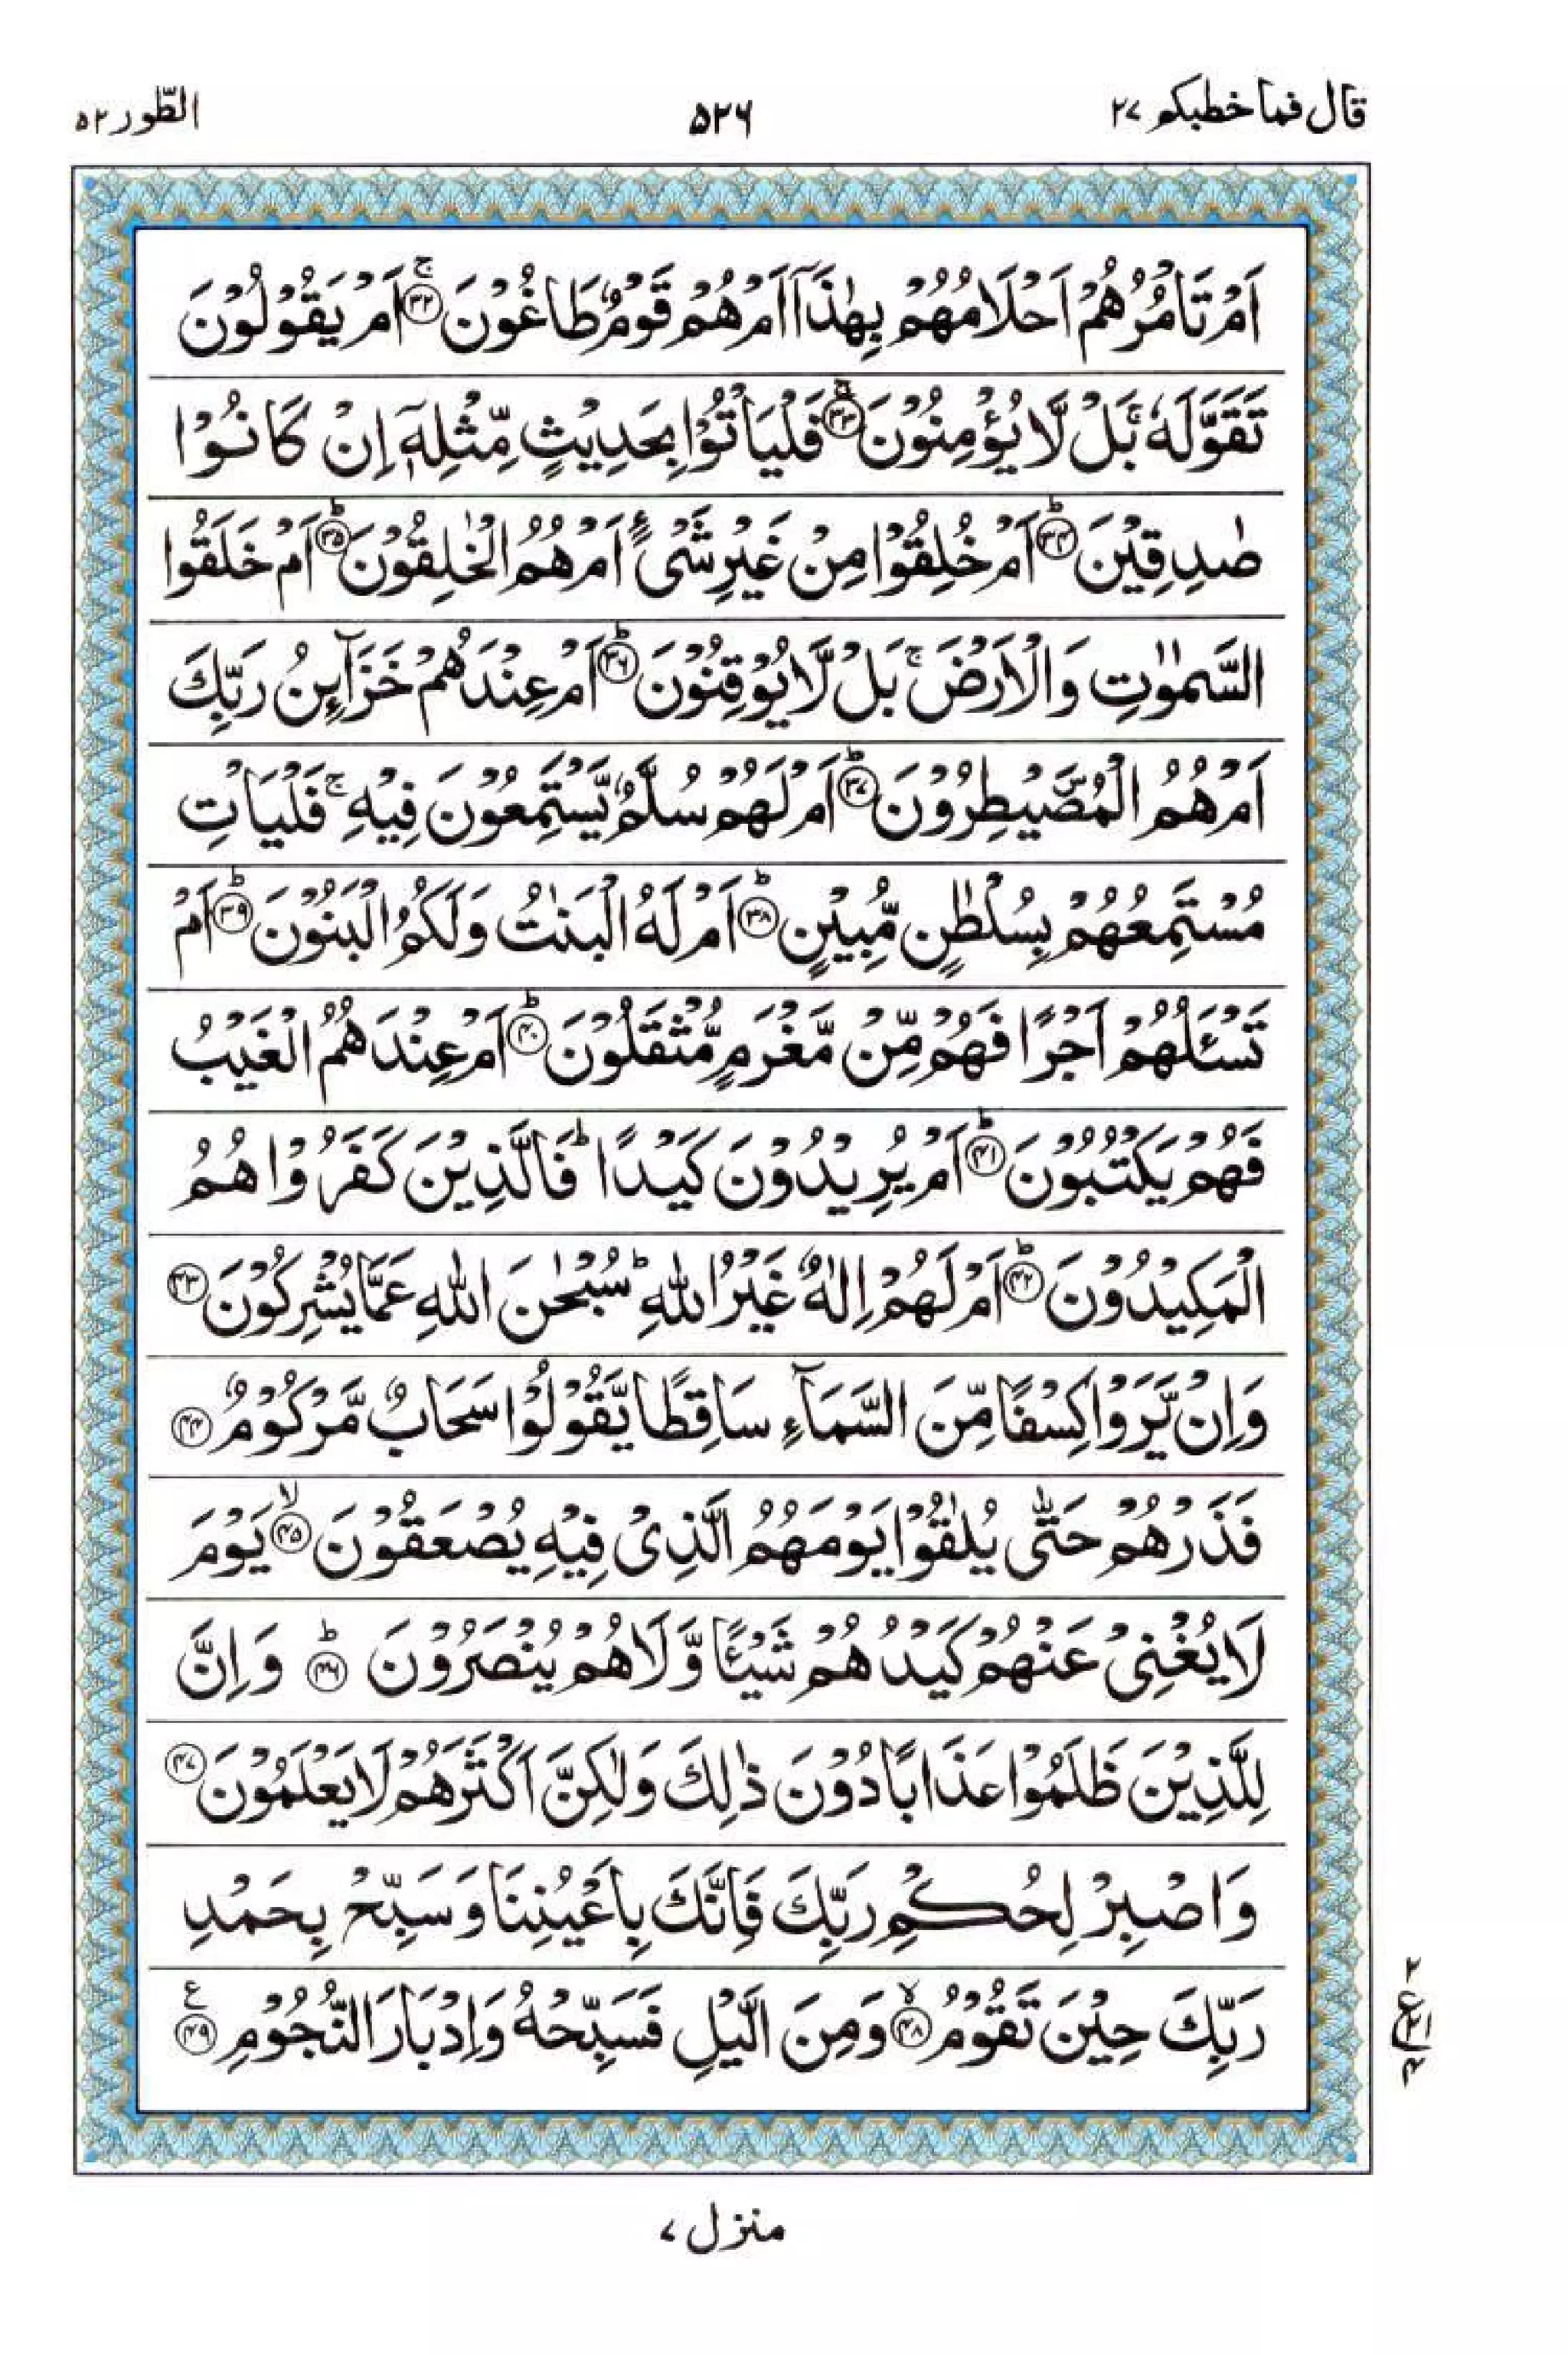 قال فما خطبكم ٢٧
٥٢٦
الطّور ٥٢
اَمْ تَاْمُرُهُمْ اَحْلَامُهُمْ بِهٰذَآ اَمْ هُمْ قَوْمٌ طَاغُوْنَ ۚ﴿٣٢﴾ اَمْ يَقُوْلُوْنَ
تَقَوَّلَهٗ ۚ بَلْ لَّا يُؤْمِنُوْنَ ۚ﴿٣٣﴾ فَلْيَاْتُوْا بِحَدِيْثٍ مِّثْلِهٖٓ اِنْ كَانُوْا
صٰدِقِيْنَ ؕ﴿٣٤﴾ اَمْ خُلِقُوْا مِنْ غَيْرِ شَىْءٍ اَمْ هُمُ الْخٰلِقُوْنَ ؕ﴿٣٥﴾ اَمْ خَلَقُوا
السَّمٰوٰتِ وَالْاَرْضَ ۚ بَلْ لَّا يُوْقِنُوْنَ ؕ﴿٣٦﴾ اَمْ عِنْدَهُمْ خَزَآىِٕنُ رَبِّكَ
اَمْ هُمُ الْمُصَۜيْطِرُوْنَ ؕ﴿٣٧﴾ اَمْ لَهُمْ سُلَّمٌ يَّسْتَمِعُوْنَ فِيْهِ ۚ فَلْيَاْتِ
مُسْتَمِعُهُمْ بِسُلْطٰنٍ مُّبِيْنٍ ؕ﴿٣٨﴾ اَمْ لَهُ الْبَنٰتُ وَلَكُمُ الْبَنُوْنَ ؕ﴿٣٩﴾ اَمْ
تَسْـَٔلُهُمْ اَجْرًا فَهُمْ مِّنْ مَّغْرَمٍ مُّثْقَلُوْنَ ؕ﴿٤٠﴾ اَمْ عِنْدَهُمُ الْغَيْبُ
فَهُمْ يَكْتُبُوْنَ ؕ﴿٤١﴾ اَمْ يُرِيْدُوْنَ كَيْدًا ؕ فَالَّذِيْنَ كَفَرُوْا هُمُ
الْمَكِيْدُوْنَ ؕ﴿٤٢﴾ اَمْ لَهُمْ اِلٰهٌ غَيْرُ اللّٰهِ ؕ سُبْحٰنَ اللّٰهِ عَمَّا يُشْرِكُوْنَ ﴿٤٣﴾
وَاِنْ يَّرَوْا كِسْفًا مِّنَ السَّمَآءِ سَاقِطًا يَّقُوْلُوْا سَحَابٌ مَّرْكُوْمٌ ﴿٤٤﴾
فَذَرْهُمْ حَتّٰى يُلٰقُوْا يَوْمَهُمُ الَّذِىْ فِيْهِ يُصْعَقُوْنَ ۙ﴿٤٥﴾ يَوْمَ
لَا يُغْنِىْ عَنْهُمْ كَيْدُهُمْ شَيْـًٔا وَّلَا هُمْ يُنْصَرُوْنَ ؕ﴿٤٦﴾ وَاِنَّ
لِلَّذِيْنَ ظَلَمُوْا عَذَابًا دُوْنَ ذٰلِكَ وَلٰكِنَّ اَكْثَرَهُمْ لَا يَعْلَمُوْنَ ﴿٤٧﴾
وَاصْبِرْ لِحُكْمِ رَبِّكَ فَاِنَّكَ بِاَعْيُنِنَا وَسَبِّحْ بِحَمْدِ
رَبِّكَ حِيْنَ تَقُوْمُ ۙ﴿٤٨﴾ وَمِنَ الَّيْلِ فَسَبِّحْهُ وَاِدْبَارَ النُّجُوْمِ ﴿٤٩﴾ ع
٢
ع ٢١
٤
منزل ٧